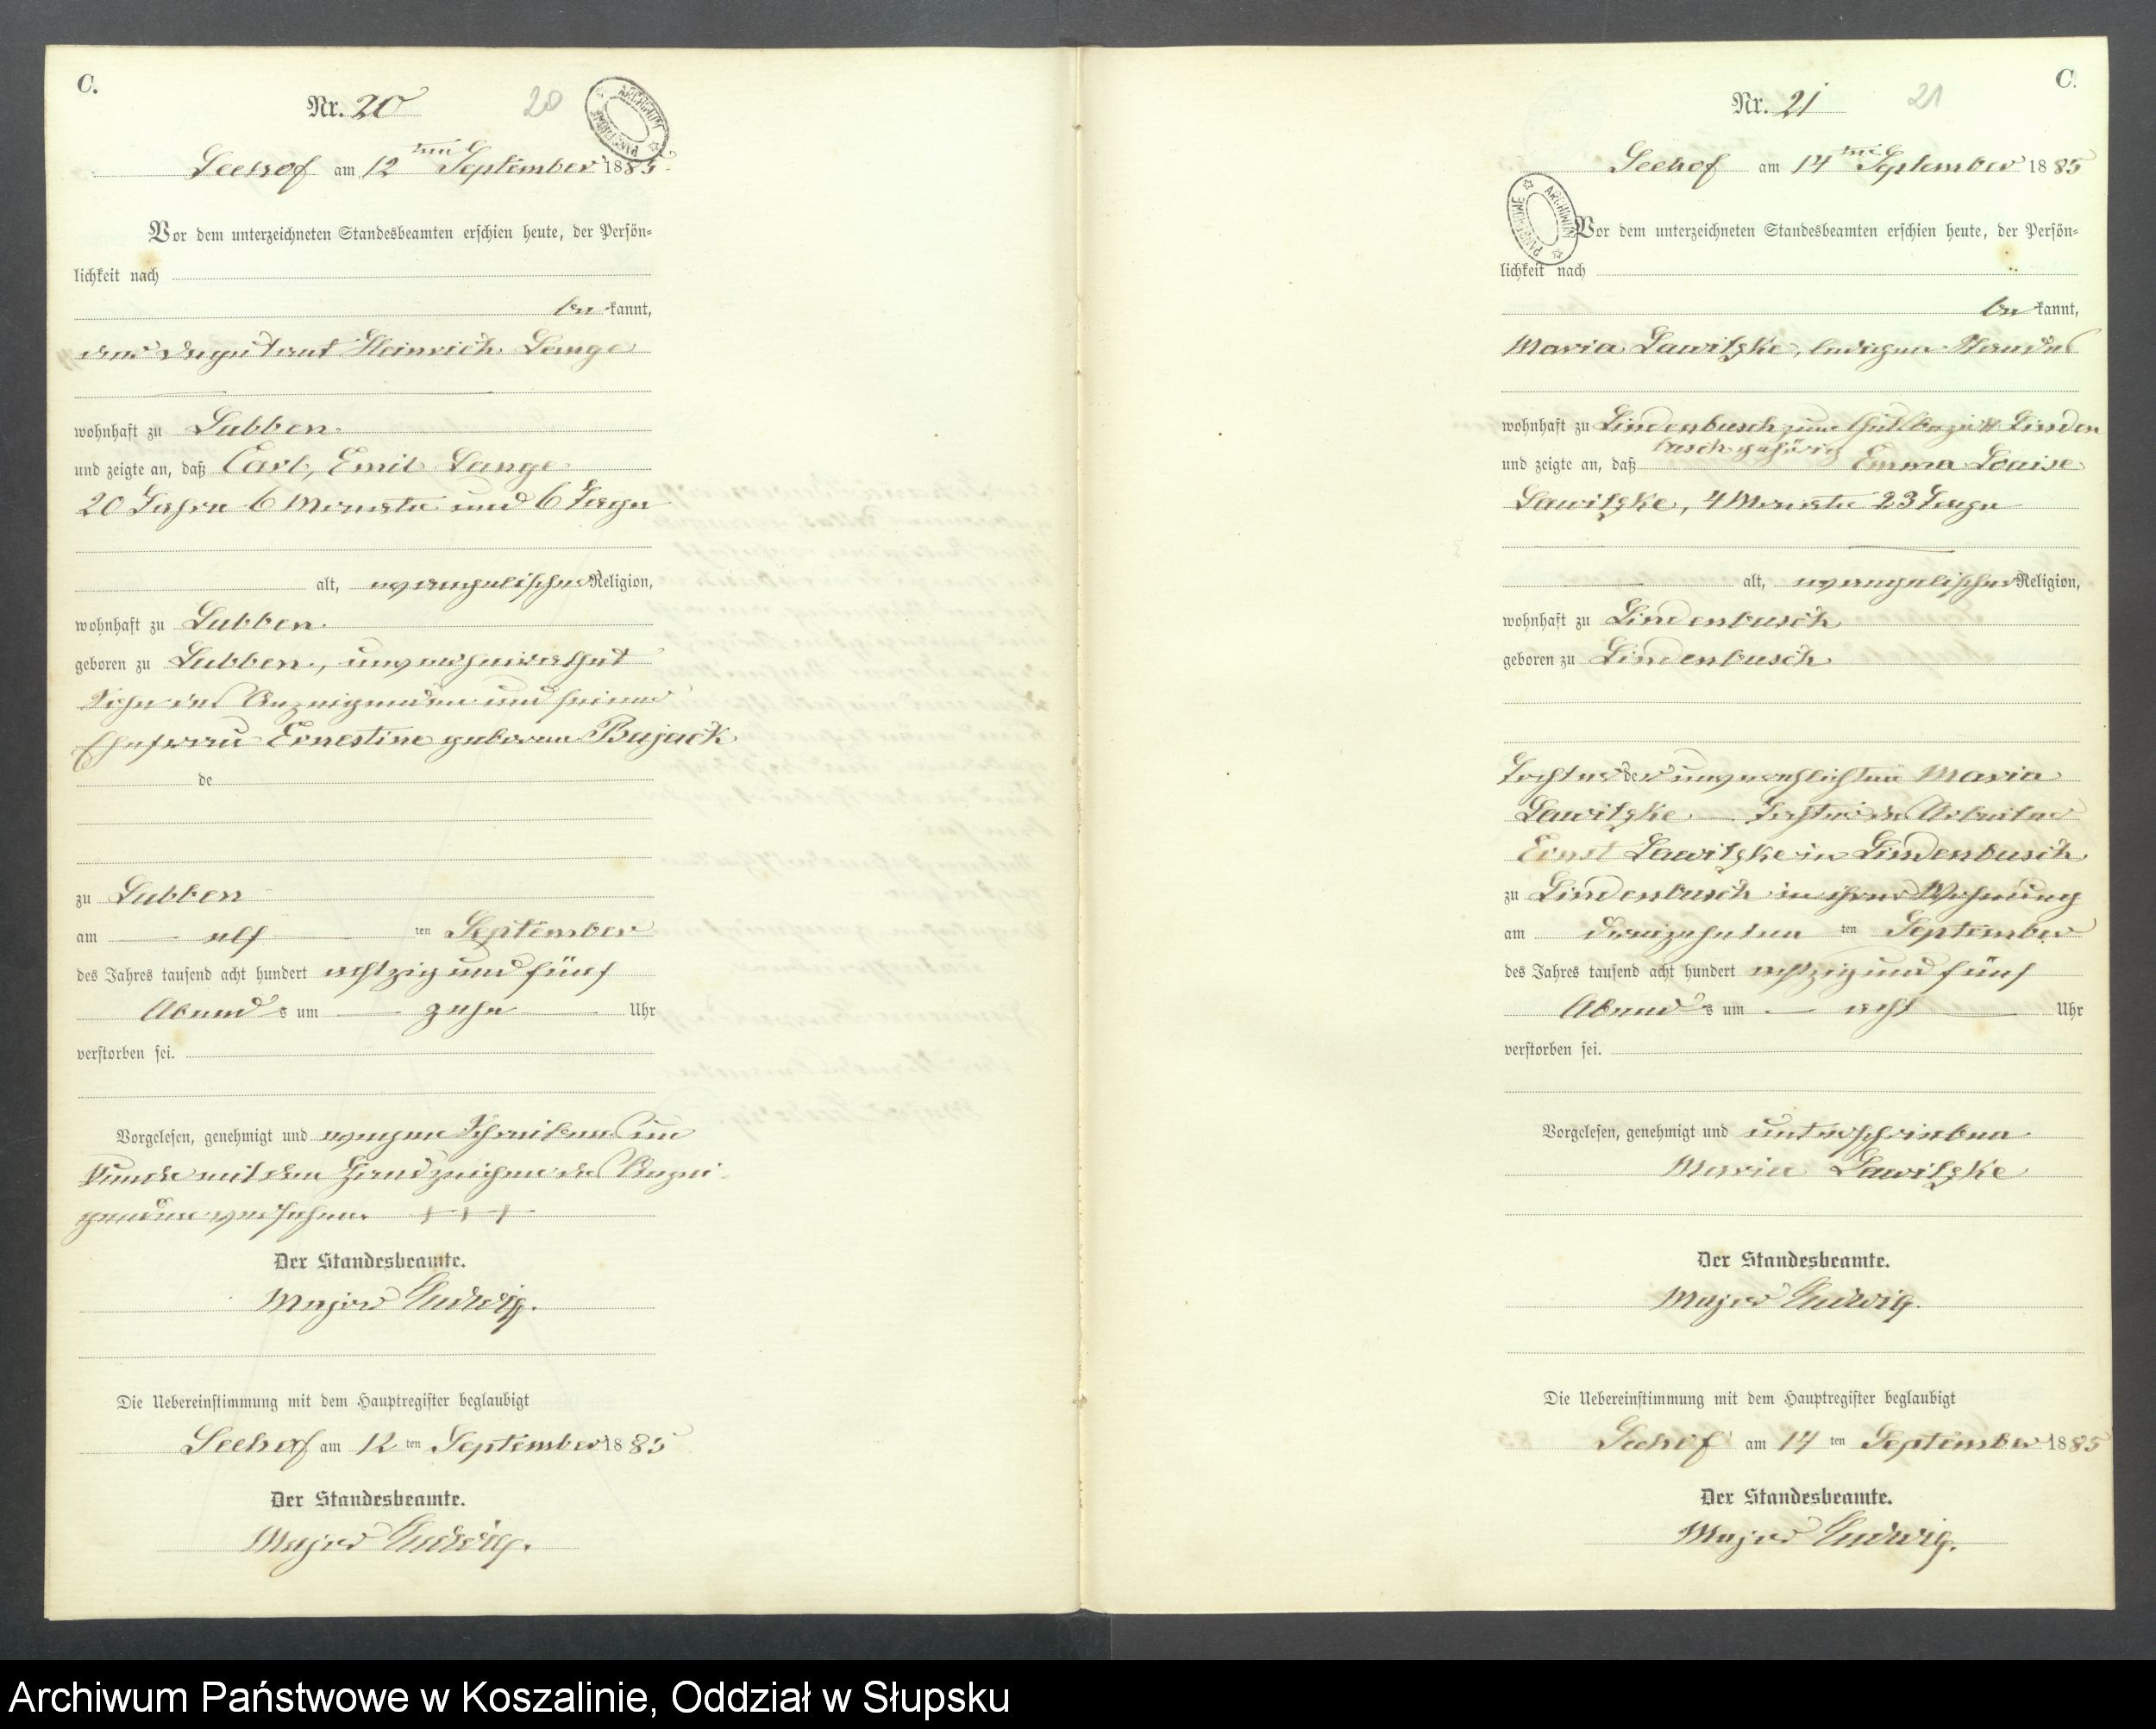 C.
Nr. 20
20
ARCHIWUM PAŃSTWOWE
Seehof am 12 ten September 1885
Vor dem unterzeichneten Standesbeamten erschien heute, der Persön=
lichkeit nach
be kannt,
der Heinrich Lange
wohnhaft zu Lubben.
und zeigte an, daß Carl, Emil Lange
20 Jahre 6 Monate und 6 Tage
alt, evangelischer Religion,
wohnhaft zu Lubben.
geboren zu Lubben, unverheirathet
Sohn des Anzeigenden und seiner
Ehefrau Ernestine geborene Bajack
de
zu Lubben
am elf ten September
des Jahres tausend acht hundert achtzig und fünf
Abend s um zehn Uhr
verstorben sei.
Vorgelesen, genehmigt und wegen Schreibens un
kunde mit dem Handzeichen des Anzei
genden versehen. +++
Der Standesbeamte.
Major Ludwig.
Die Uebereinstimmung mit dem Hauptregister beglaubigt
Seehof am 12 ten September 1885
Der Standesbeamte.
Major Ludwig.
C.
Nr. 21
21
ARCHIWUM PAŃSTWOWE
Seehof am 14 ten September 1885
Vor dem unterzeichneten Standesbeamten erschien heute, der Persön=
lichkeit nach
be kannt,
Maria Lawitzke, ledigen Standes
wohnhaft zu Lindenbusch zum Gutsbezirk Linden
busch gehörig
und zeigte an, daß Emma Louise
Lawitzke, 4 Monate 23 Tage
alt, evangelischer Religion,
wohnhaft zu Lindenbusch
geboren zu Lindenbusch
Tochter der unverehlichten Maria
Lawitzke — Tochter des Arbeiter
Ernst Lawitzke in Lindenbusch
zu Lindenbusch in ihrer Wohnung
am dreizehnten ten September
des Jahres tausend acht hundert achtzig und fünf
Abend s um acht Uhr
verstorben sei.
Vorgelesen, genehmigt und unterschrieben
Maria Lawitzke
Der Standesbeamte.
Major Ludwig.
Die Uebereinstimmung mit dem Hauptregister beglaubigt
Seehof am 14 ten September 1885
Der Standesbeamte.
Major Ludwig.
Archiwum Państwowe w Koszalinie, Oddział w Słupsku